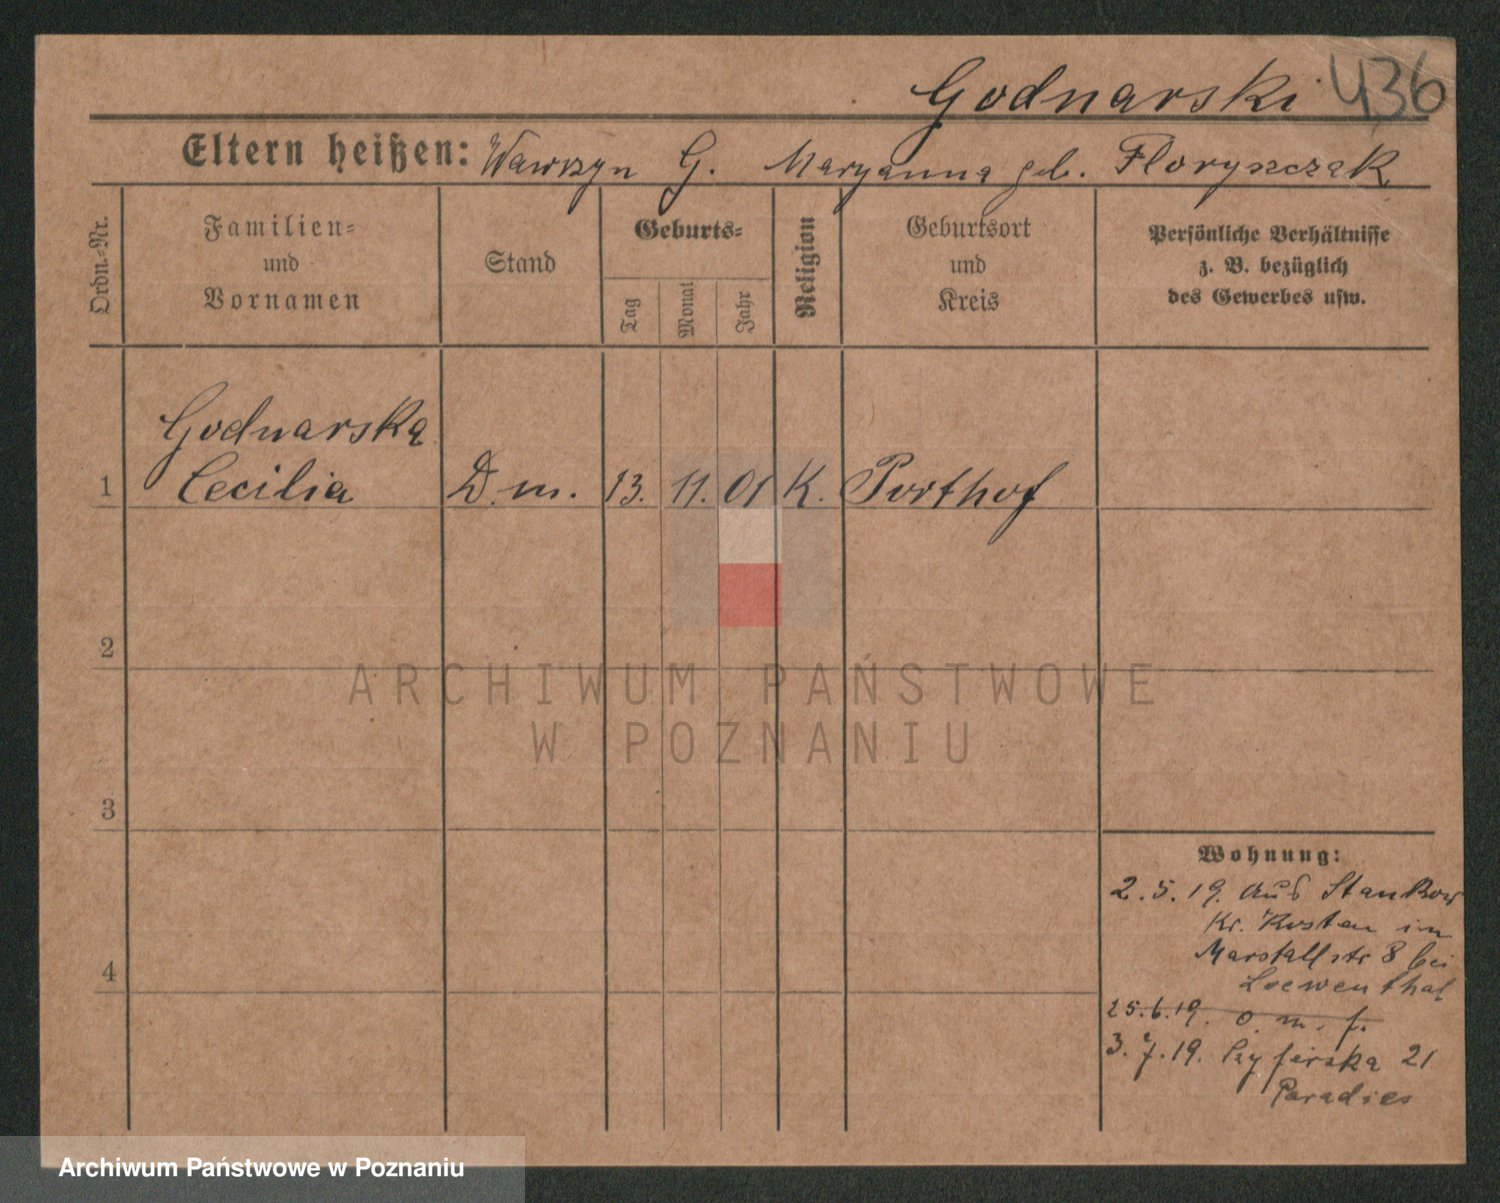 Godnarski 436
Eltern heißen: Wawrzyn G. Maryanna geb. Floryszczak
Ordn.-Nr.
Familien-
und
Vornamen
Stand
Geburts-
Tag
Monat
Jahr
Religion
Geburtsort
und
Kreis
Persönliche Verhältnisse
z. B. bezüglich
des Gewerbes usw.
Godnarska
1 Cecilia D.m. 13. 11. 01 K. Porthof
2
3
4
Wohnung:
2.5.19. aus Stankow
Kr. Kosten in
Marstallstr 8 bei
Loewenthal
25.6.19. o. m. f.
3.7.19. 21
Paradies
ARCHIWUM PAŃSTWOWE
W POZNANIU
Archiwum Państwowe w Poznaniu